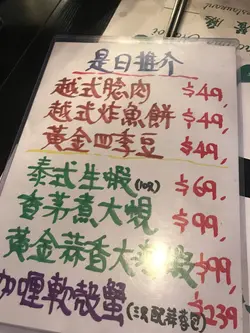 是日推介
越式腍肉 $49,
越式炸魚餅 $49,
黃金四季豆 $49,
泰式生蝦(10只) $69,
香茅煮大蜆 $99,
黃金蒜香大蝦 $99,
咖喱軟殼蟹(三只配蒜香包) $239